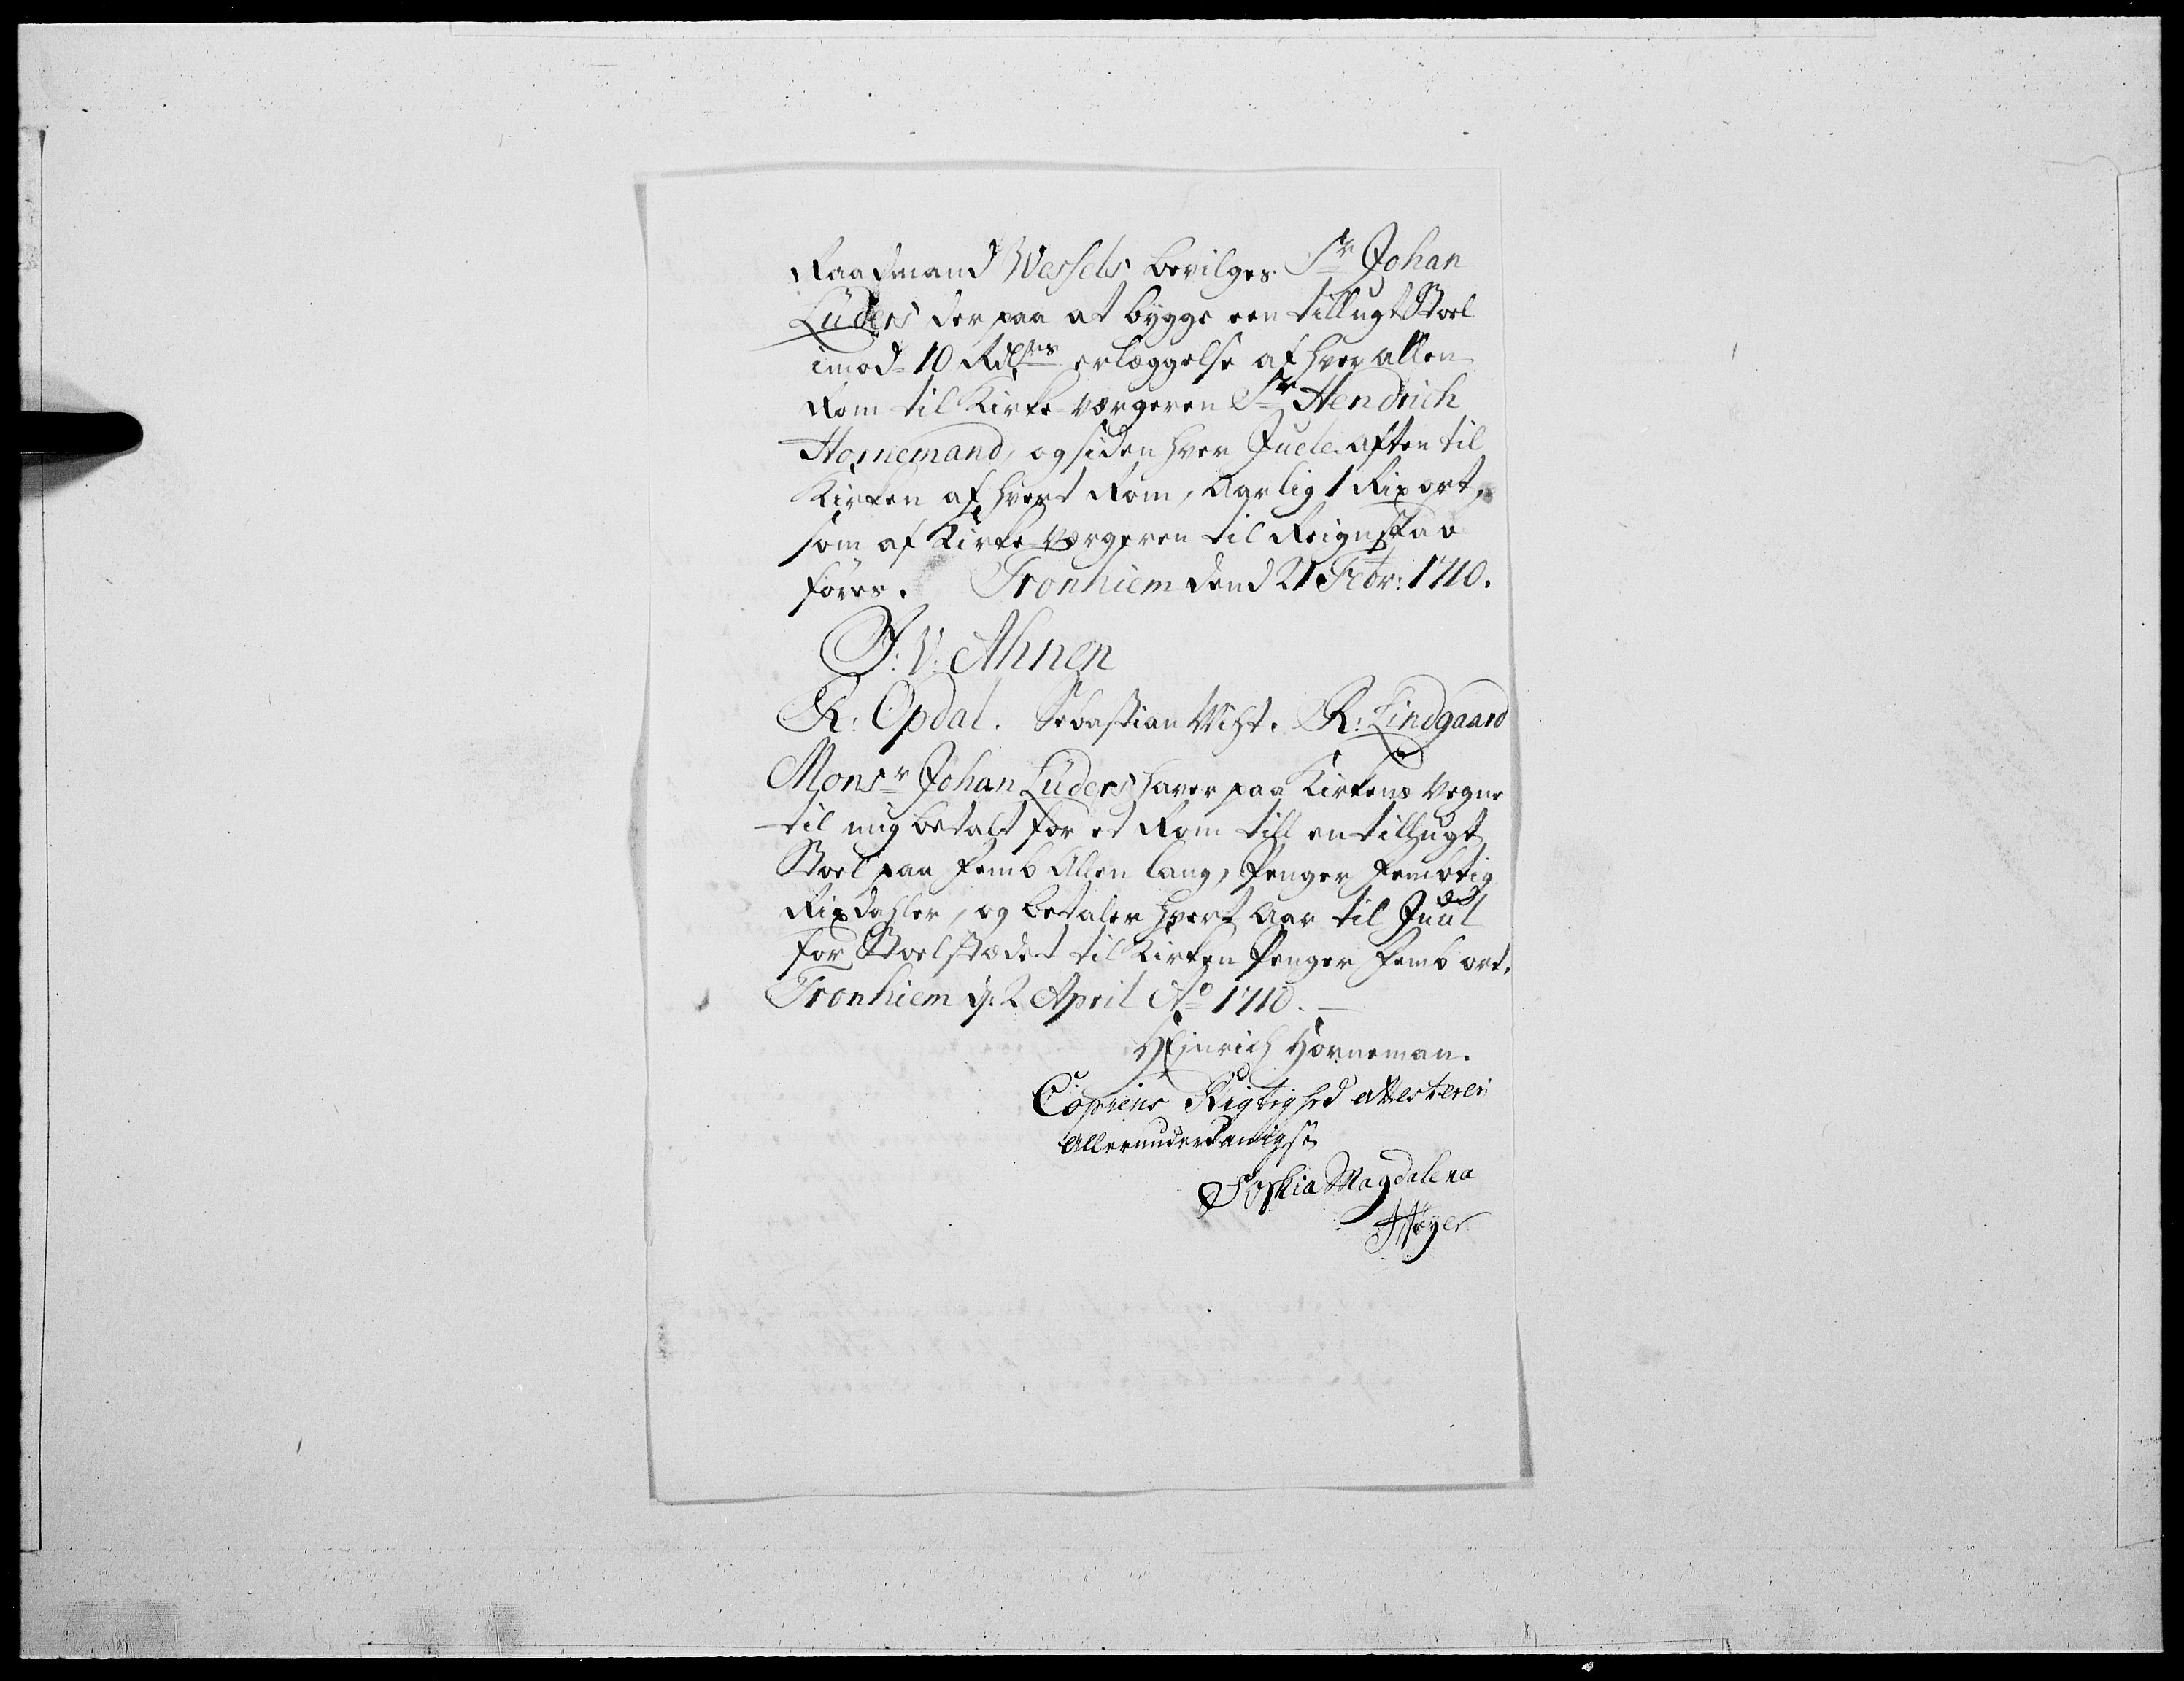 Raadmand Wessels bevilges Sr Johan
Lüders der paa at bygge een tillugt Stoel
imod 10 Rdlrs erlæggelse af hver allen
Rom til Kirke-værgeren Sr Hendrich
Hornemand, og siden hver Juele aften til
Kirken af hvert Rom, Aarlig 1 Rix ort,
som af Kirke-værgeren til Reignskav
föres. Tronhiem dend 21 Febr: 1710.
J: V: Ahnen
R: Opdal. Sebastian Wiht. R: Lindgaard
Monsr Johan Lüders haver paa Kirkens vegne
til mig betalt for et Rom till en tillugt
Stoel paa Femb Allen lang, Penger Fembtig
Rixdahler, og betaler hvert Aar til Juul
for Stoelstædet til Kirken Penger Femb ort.
Tronhiem d: 2 April Ao 1710.
Heinrich Horneman.
Copiens Rigtighed attesterer
Allerunderdanigst
Sophia Magdalena
Høyer